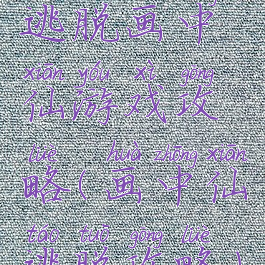 逃脱画中
xiān yóu xì gōng
仙游戏攻
lüè huà zhōng xiān
略(画中仙
táo tuō gōng lüè
逃脱攻略)